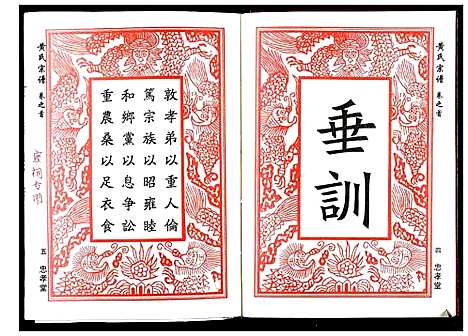 黃氏宗譜 卷之首
垂訓
四 忠孝堂
敦孝弟以重人倫
篤宗族以昭雍睦
和鄉黨以息争訟
重農桑以足衣食
黃氏宗譜 卷之首
五 忠孝堂